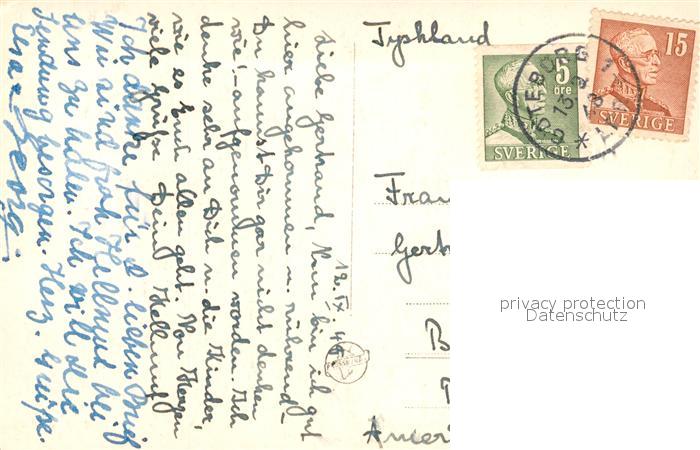 Tyskland
5
öre
SVERIGE
15
SVERIGE
GÖTEBORG 1
13 9
48
Frau
Ger
B
Amer
privacy protection
Datenschutz
12. IX. 4
Liebe Gertraud, Nun bin ich gut
hier angekommen u. rührend
Du kannst Dir gar nicht denken
wie! aufgenommen worden. Ich
denke sehr an Dich u. die Kinder,
wie es Euch allen geht. Von Herzen
viele Grüße Dein Hellmut
Ich danke für d. lieben Brief
Wir sind froh Hellmut bei
uns zu haben. Ich will die
Sendung besorgen. Herz. Grüße.
Georg.